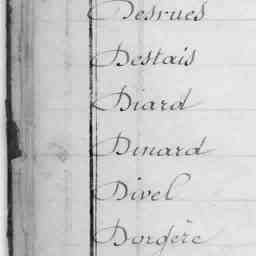 Desrues
Destais
Diard
Dinard
Divel
Dorgère